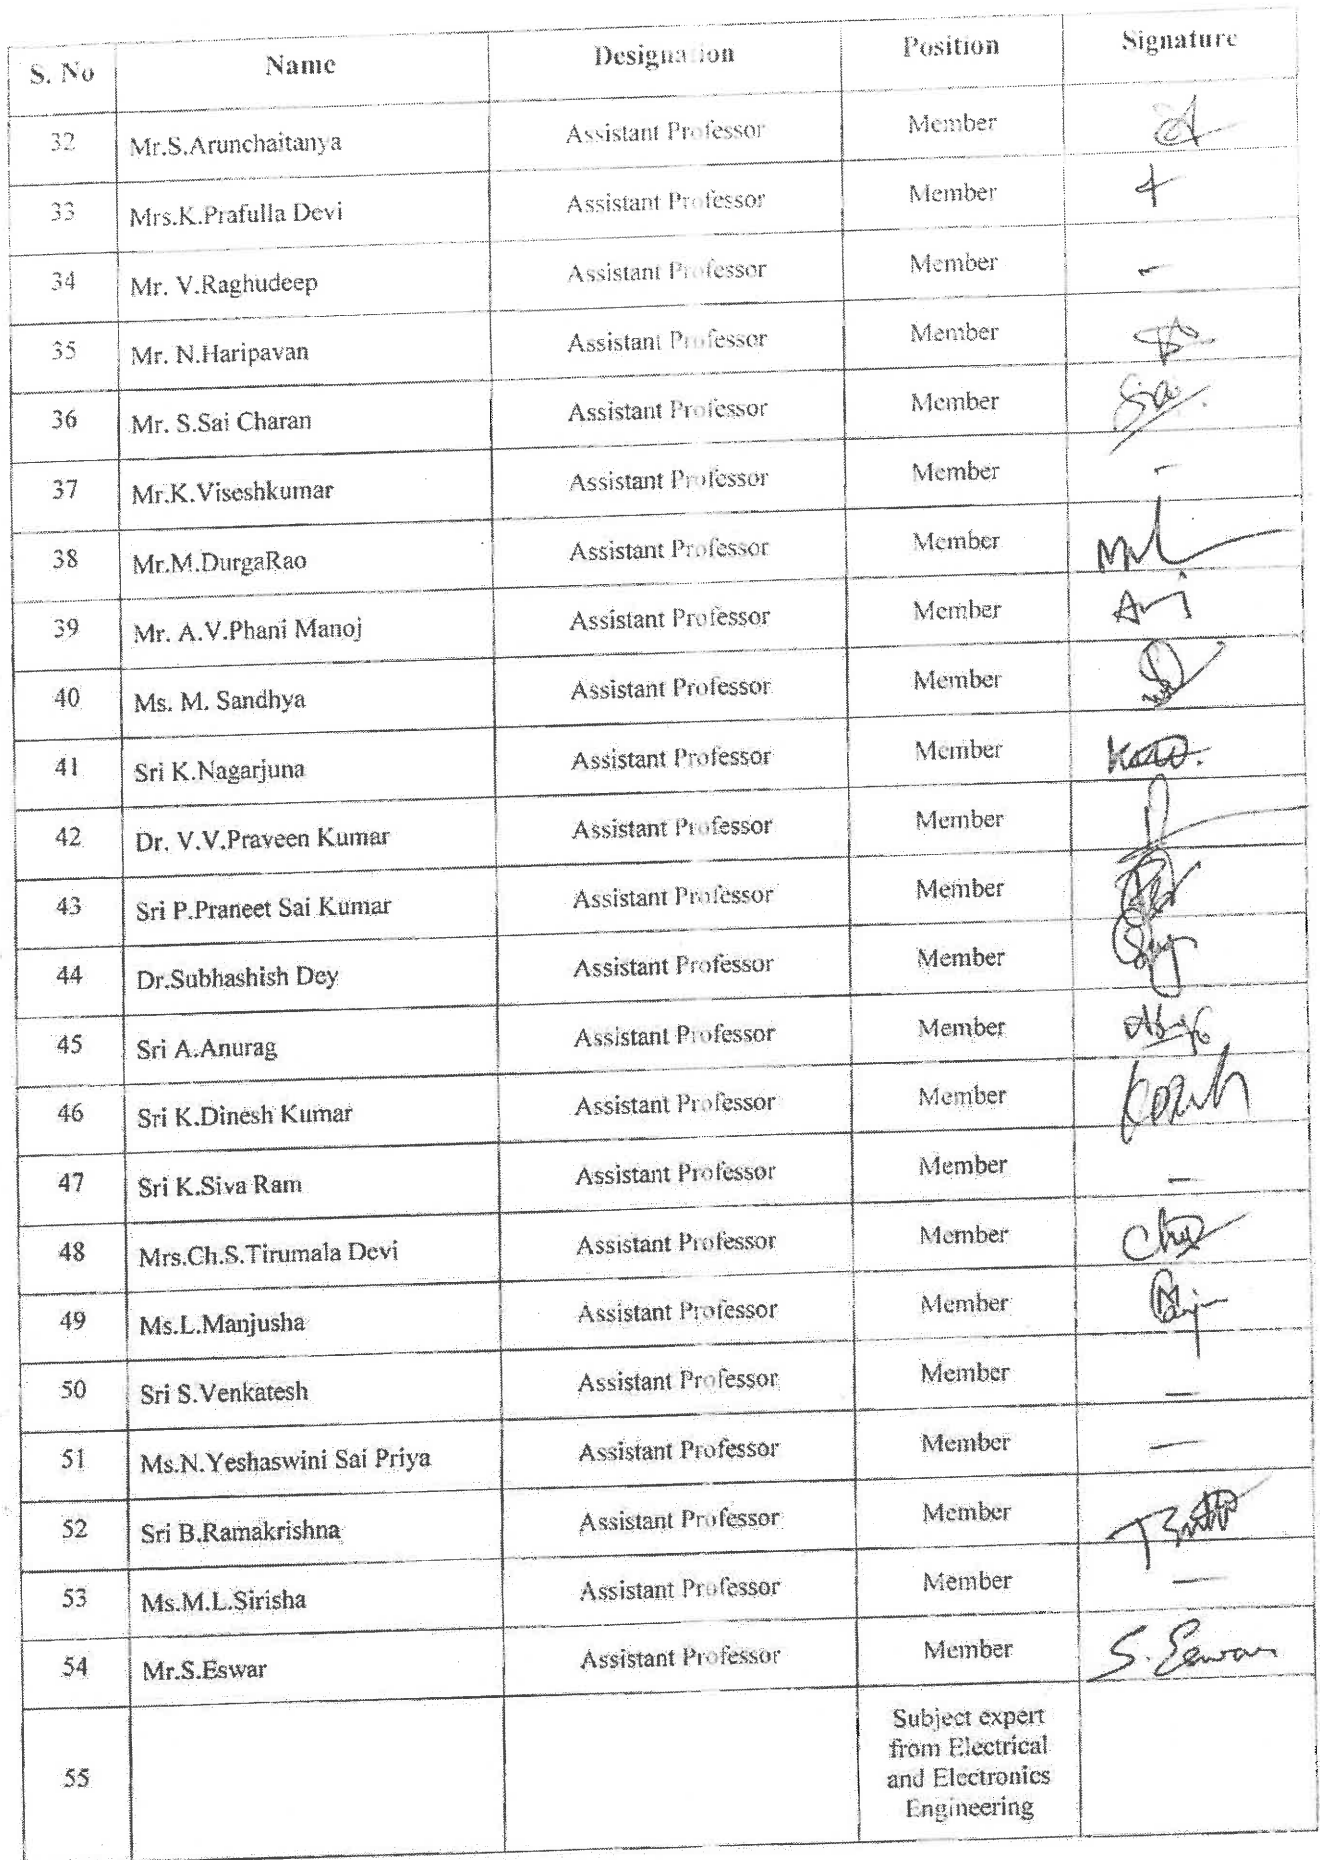 S. No Name Designation Position Signature
32 Mr.S.Arunchaitanya Assistant Professor Member
33 Mrs.K.Prafulla Devi Assistant Professor Member
34 Mr. V.Raghudeep Assistant Professor Member -
35 Mr. N.Haripavan Assistant Professor Member
36 Mr. S.Sai Charan Assistant Professor Member
37 Mr.K.Viseshkumar Assistant Professor Member -
38 Mr.M.DurgaRao Assistant Professor Member
39 Mr. A.V.Phani Manoj Assistant Professor Member
40 Ms. M. Sandhya Assistant Professor Member
41 Sri K.Nagarjuna Assistant Professor Member
42 Dr. V.V.Praveen Kumar Assistant Professor Member
43 Sri P.Praneet Sai Kumar Assistant Professor Member
44 Dr.Subhashish Dey Assistant Professor Member
45 Sri A.Anurag Assistant Professor Member
46 Sri K.Dinesh Kumar Assistant Professor Member
47 Sri K.Siva Ram Assistant Professor Member -
48 Mrs.Ch.S.Tirumala Devi Assistant Professor Member
49 Ms.L.Manjusha Assistant Professor Member
50 Sri S.Venkatesh Assistant Professor Member -
51 Ms.N.Yeshaswini Sai Priya Assistant Professor Member -
52 Sri B.Ramakrishna Assistant Professor Member
53 Ms.M.L.Sirisha Assistant Professor Member -
54 Mr.S.Eswar Assistant Professor Member S. Eswar
55 Subject expert
from Electrical
and Electronics
Engineering